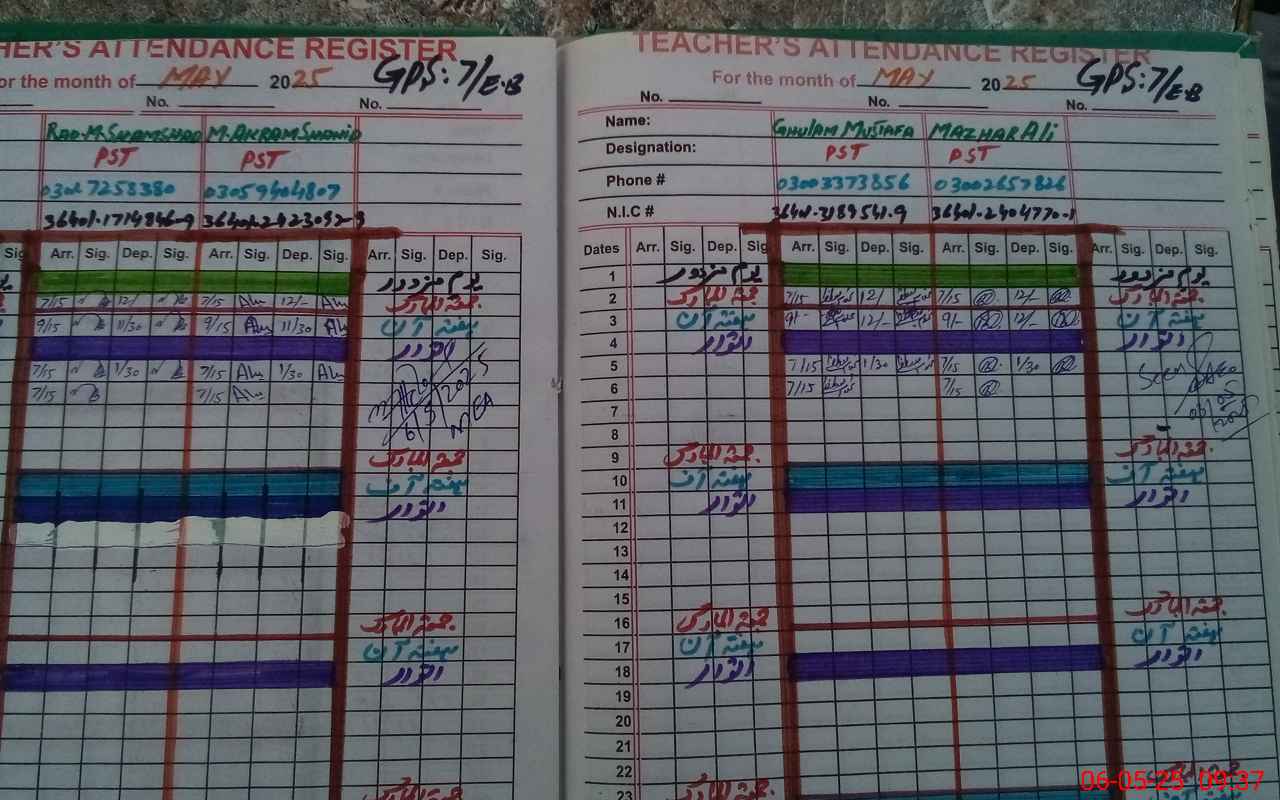 HER'S ATTENDANCE REGISTER
or the month of MAY 2025 GPS:7/E.B
No. No.
RAO M. SHAMSHAD M. AKRAM SHAHID
PST PST
03059404807
Sig. Arr. Sig. Dep. Sig. Arr. Sig. Dep. Sig. Arr. Sig. Dep. Sig.
یوم مزدور
7/15 12/ 7/15 12/- جمعۃ المبارک
9/15 11/30 9/15 11/30 ہفتہ آف
اتوار
7/15 1/30 7/15 1/30
7/15 7/15
6/5/2025
MEA
جمعۃ المبارک
ہفتہ آف
اتوار
جمعۃ المبارک
ہفتہ آف
اتوار
TEACHER'S ATTENDANCE REGISTER
For the month of MAY 2025 GPS:7/E.B
No. No. No.
Name: GHULAM MUSTAFA MAZHAR ALI
Designation: PST PST
Phone # 03003373856 03002657826
N.I.C # 36401-3189541-9 36401-2404770-1
Dates Arr. Sig. Dep. Sig. Arr. Sig. Dep. Sig. Arr. Sig. Dep. Sig. Arr. Sig. Dep. Sig.
1 یوم مزدور یوم مزدور
2 جمعۃ المبارک 7/15 12/ 7/15 12/- جمعۃ المبارک
3 ہفتہ آف 9/- 12/- 9/- 12/- ہفتہ آف
4 اتوار اتوار
5 7/15 1/30 7/15 1/30 Seen
6 7/15 7/15
7
8
9 جمعۃ المبارک جمعۃ المبارک
10 ہفتہ آف ہفتہ آف
11 اتوار اتوار
12
13
14
15
16 جمعۃ المبارک جمعۃ المبارک
17 ہفتہ آف ہفتہ آف
18 اتوار اتوار
19
20
21
22
23 جمعۃ المبارک جمعۃ المبارک
06-05-25 09:37